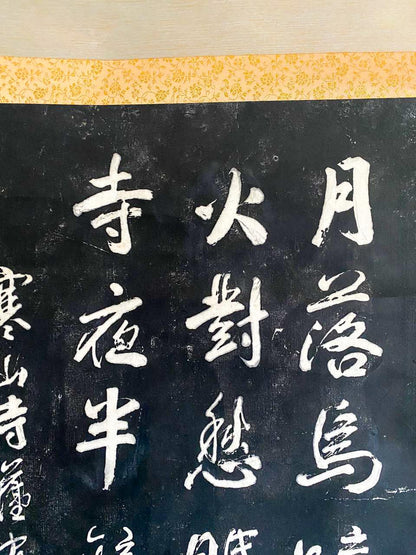 月落烏
火對愁
寺夜半
寒山寺舊